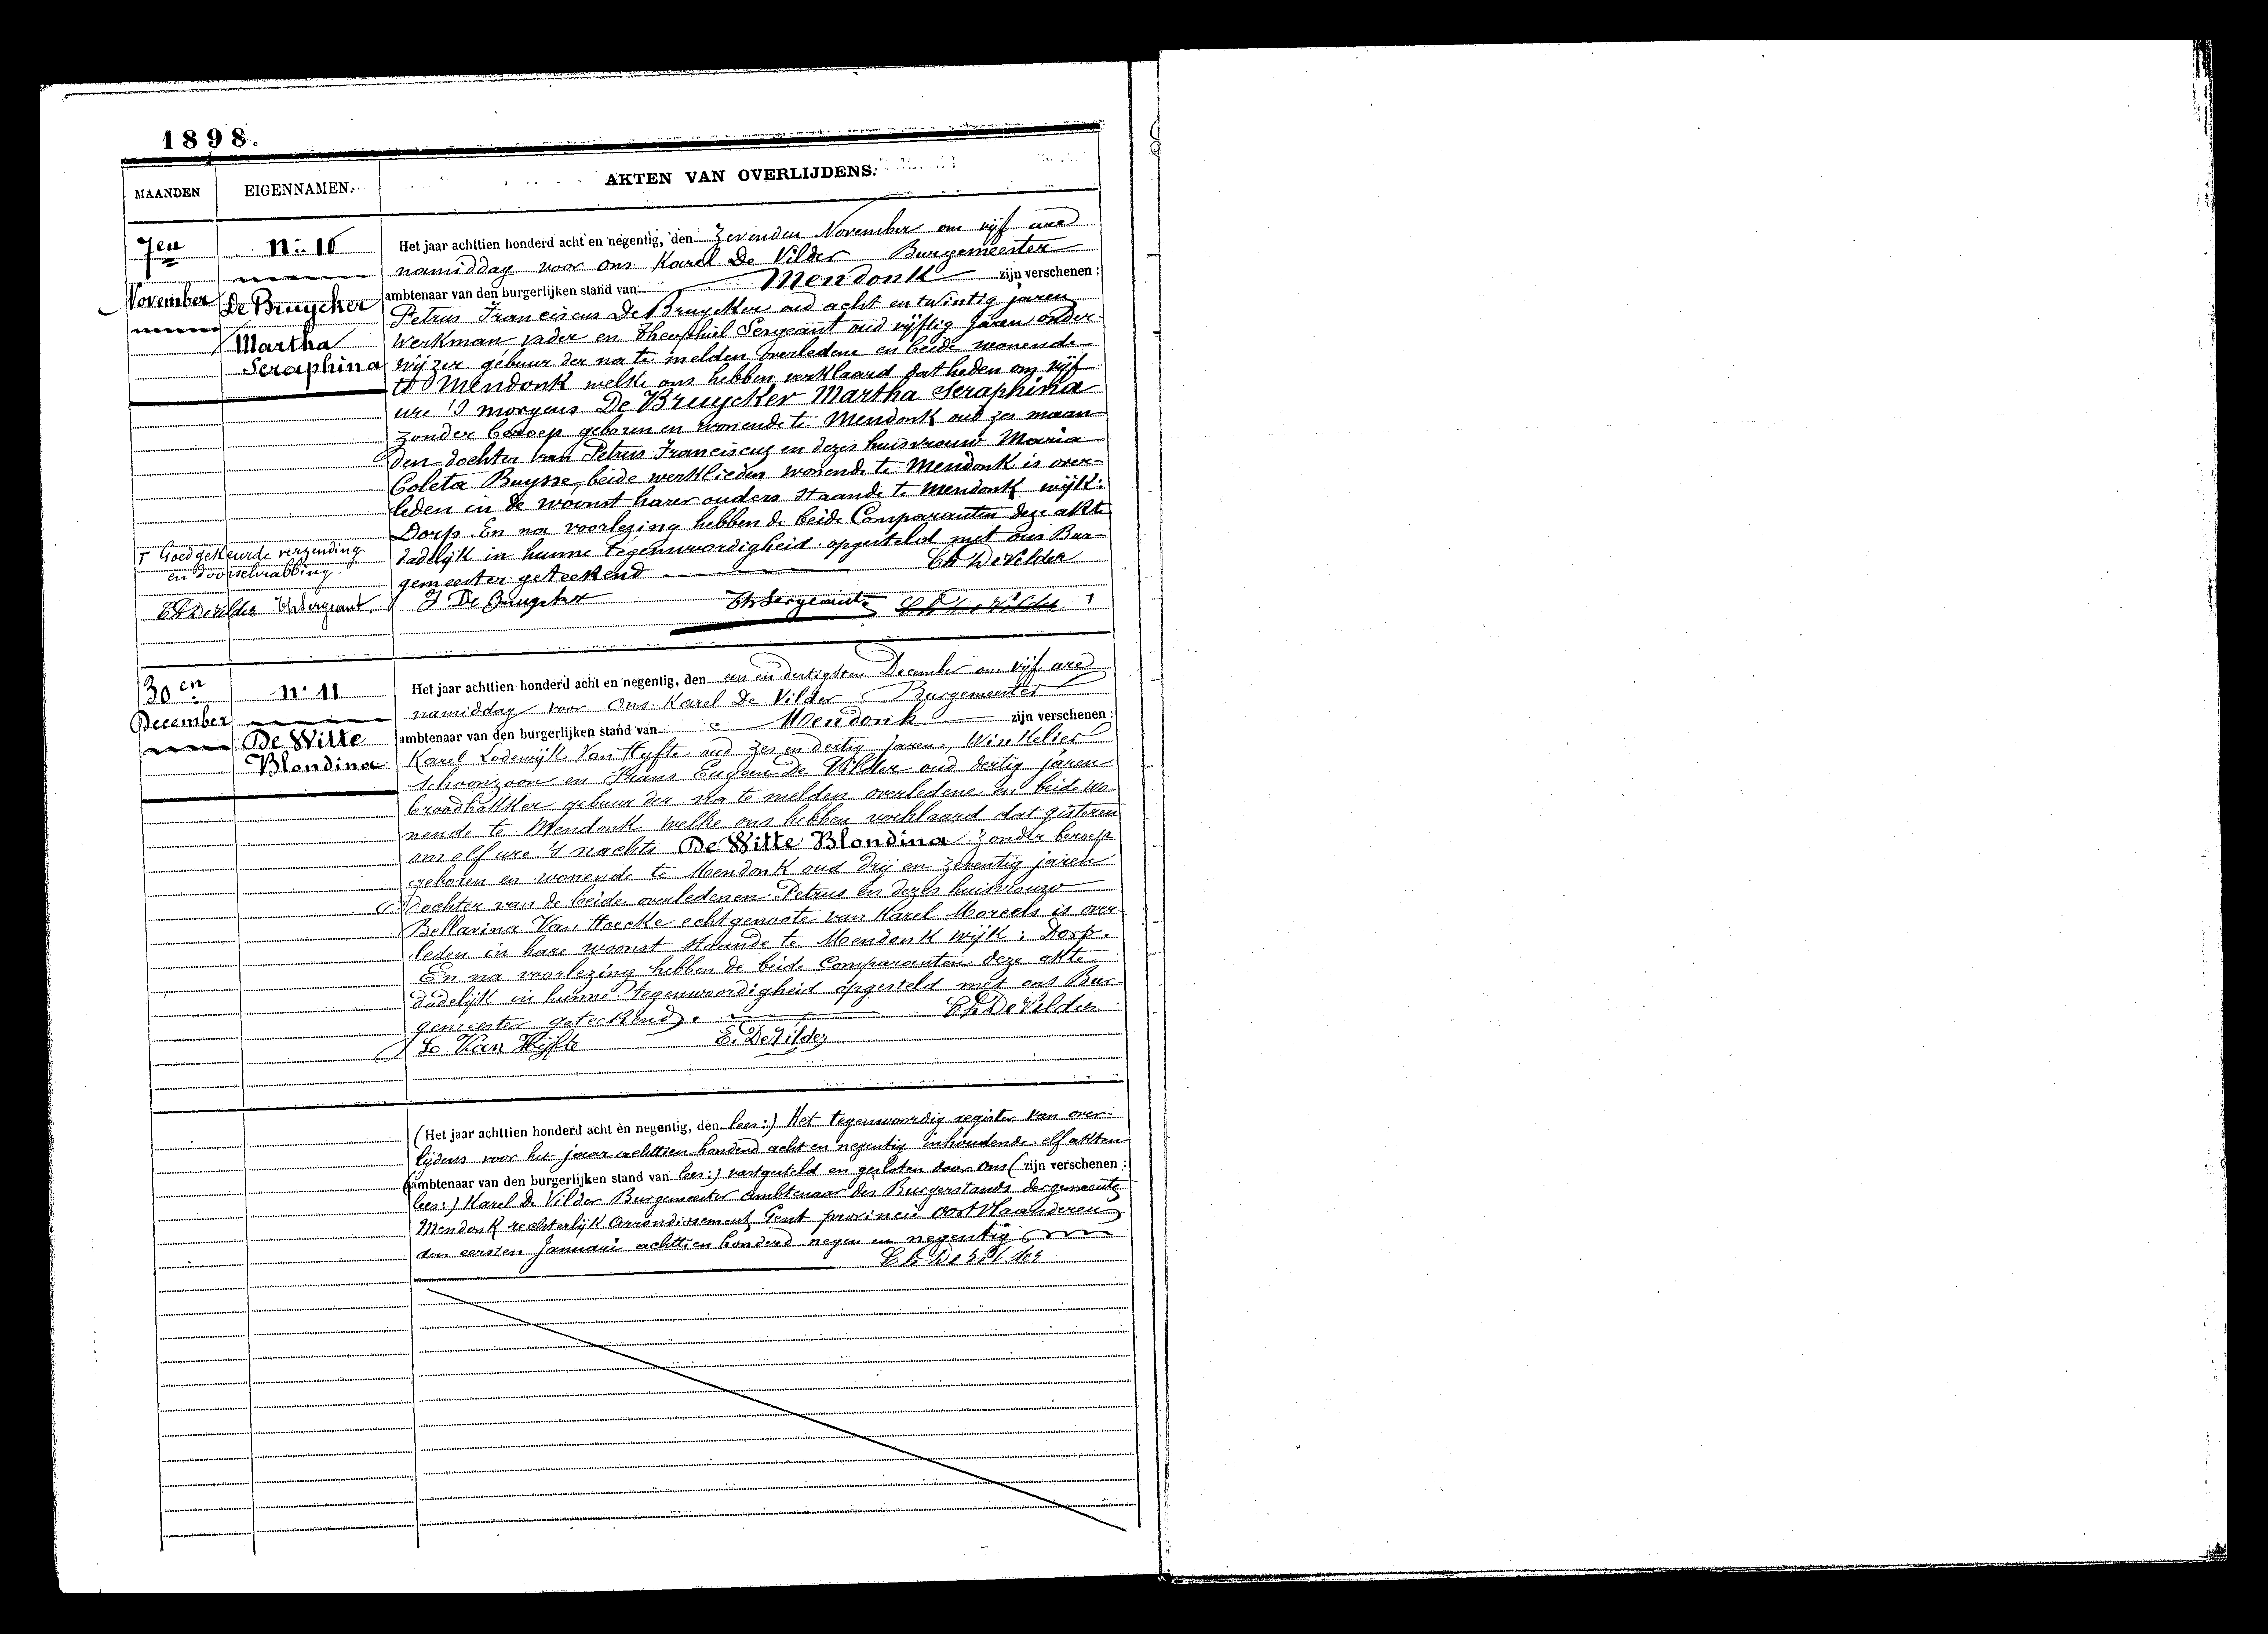 1898.
MAANDEN EIGENNAMEN. AKTEN VAN OVERLIJDENS.
7en
November
N:. 10
De Bruycker
Martha
Seraphina
Het jaar achttien honderd acht en negentig, den zevenden November om vijf ure
namiddag voor ons Karel De Vilder Burgemeester
ambtenaar van den burgerlijken stand van Mendonk zijn verschenen:
Petrus Franciscus De Bruycker oud acht en twintig jaren
Werkman vader en Theophiel Sergeant oud vijftig jaren onder-
wijzer gebuur der na te melden overledene en beide wonende
te Mendonk welke ons hebben verklaard dat heden om vijf
ure 's morgens De Bruycker Martha Seraphina
zonder beroep geboren en wonende te Mendonk oud zes maan
den dochter van Petrus Franciscus en dezes huisvrouw Maria
Coleta Buysse, beide werklieden wonende te Mendonk is over-
leden in de woonst harer ouders staande te Mendonk wijk:
Dorp. En na voorlezing hebben de beide Comparanten deze akte
dadelijk in hunne tegenwoordigheid opgesteld met ons Bur-
gemeester geteekend Ch De Vilder
De Bruycker Th Sergeant Ch De Vilder
Goedgekeurde verzending
en doorschrabbing
Ch De Vilder Th Sergeant
30en
December
n: 11
De Witte
Blondina
Het jaar achttien honderd acht en negentig, den een en dertigsten December om vijf ure
namiddag voor Ons Karel De Vilder Burgemeester
ambtenaar van den burgerlijken stand van Mendonk zijn verschenen:
Karel Lodewijk Van Hyfte oud zes en dertig jaren, Winkelier
schoonzoon en Frans Eugeen De Vilder oud dertig jaren
broodbakker gebuur der na te melden overledene en beide wo-
nende te Mendonk welke ons hebben verklaard dat gisteren
om elf ure 's nachts De Witte Blondina zonder beroep
geboren en wonende te Mendonk oud drij en zeventig jaren
Dochter van de beide overledenen Petrus en dezes huisvrouw
Bellarina Van Hoecke echtgenoote van Karel Moreels is over-
leden in hare woonst staande te Mendonk wijk: Dorp.
En na voorlezing hebben de beide Comparanten deze akte
dadelijk in hunne tegenwoordigheid opgesteld met ons Bur-
gemeester geteekend. Ch De Vilder
Van Hijfte E. De Vilder
(Het jaar achttien honderd acht en negentig, den lees:) Het tegenwoordig register van over-
lijdens voor het jaar achttien honderd acht en negentig inhoudende elf akten
(ambtenaar van den burgerlijken stand van lees:) vastgesteld en gesloten door Ons (zijn verschenen:
lees:) Karel De Vilder Burgemeester Ambtenaar des Burgerstands der gemeente
Mendonk rechterlijk Arrondissement Gent provincie Oostvlaanderen
den eersten Januari achttien honderd negen en negentig
Ch De Vilder